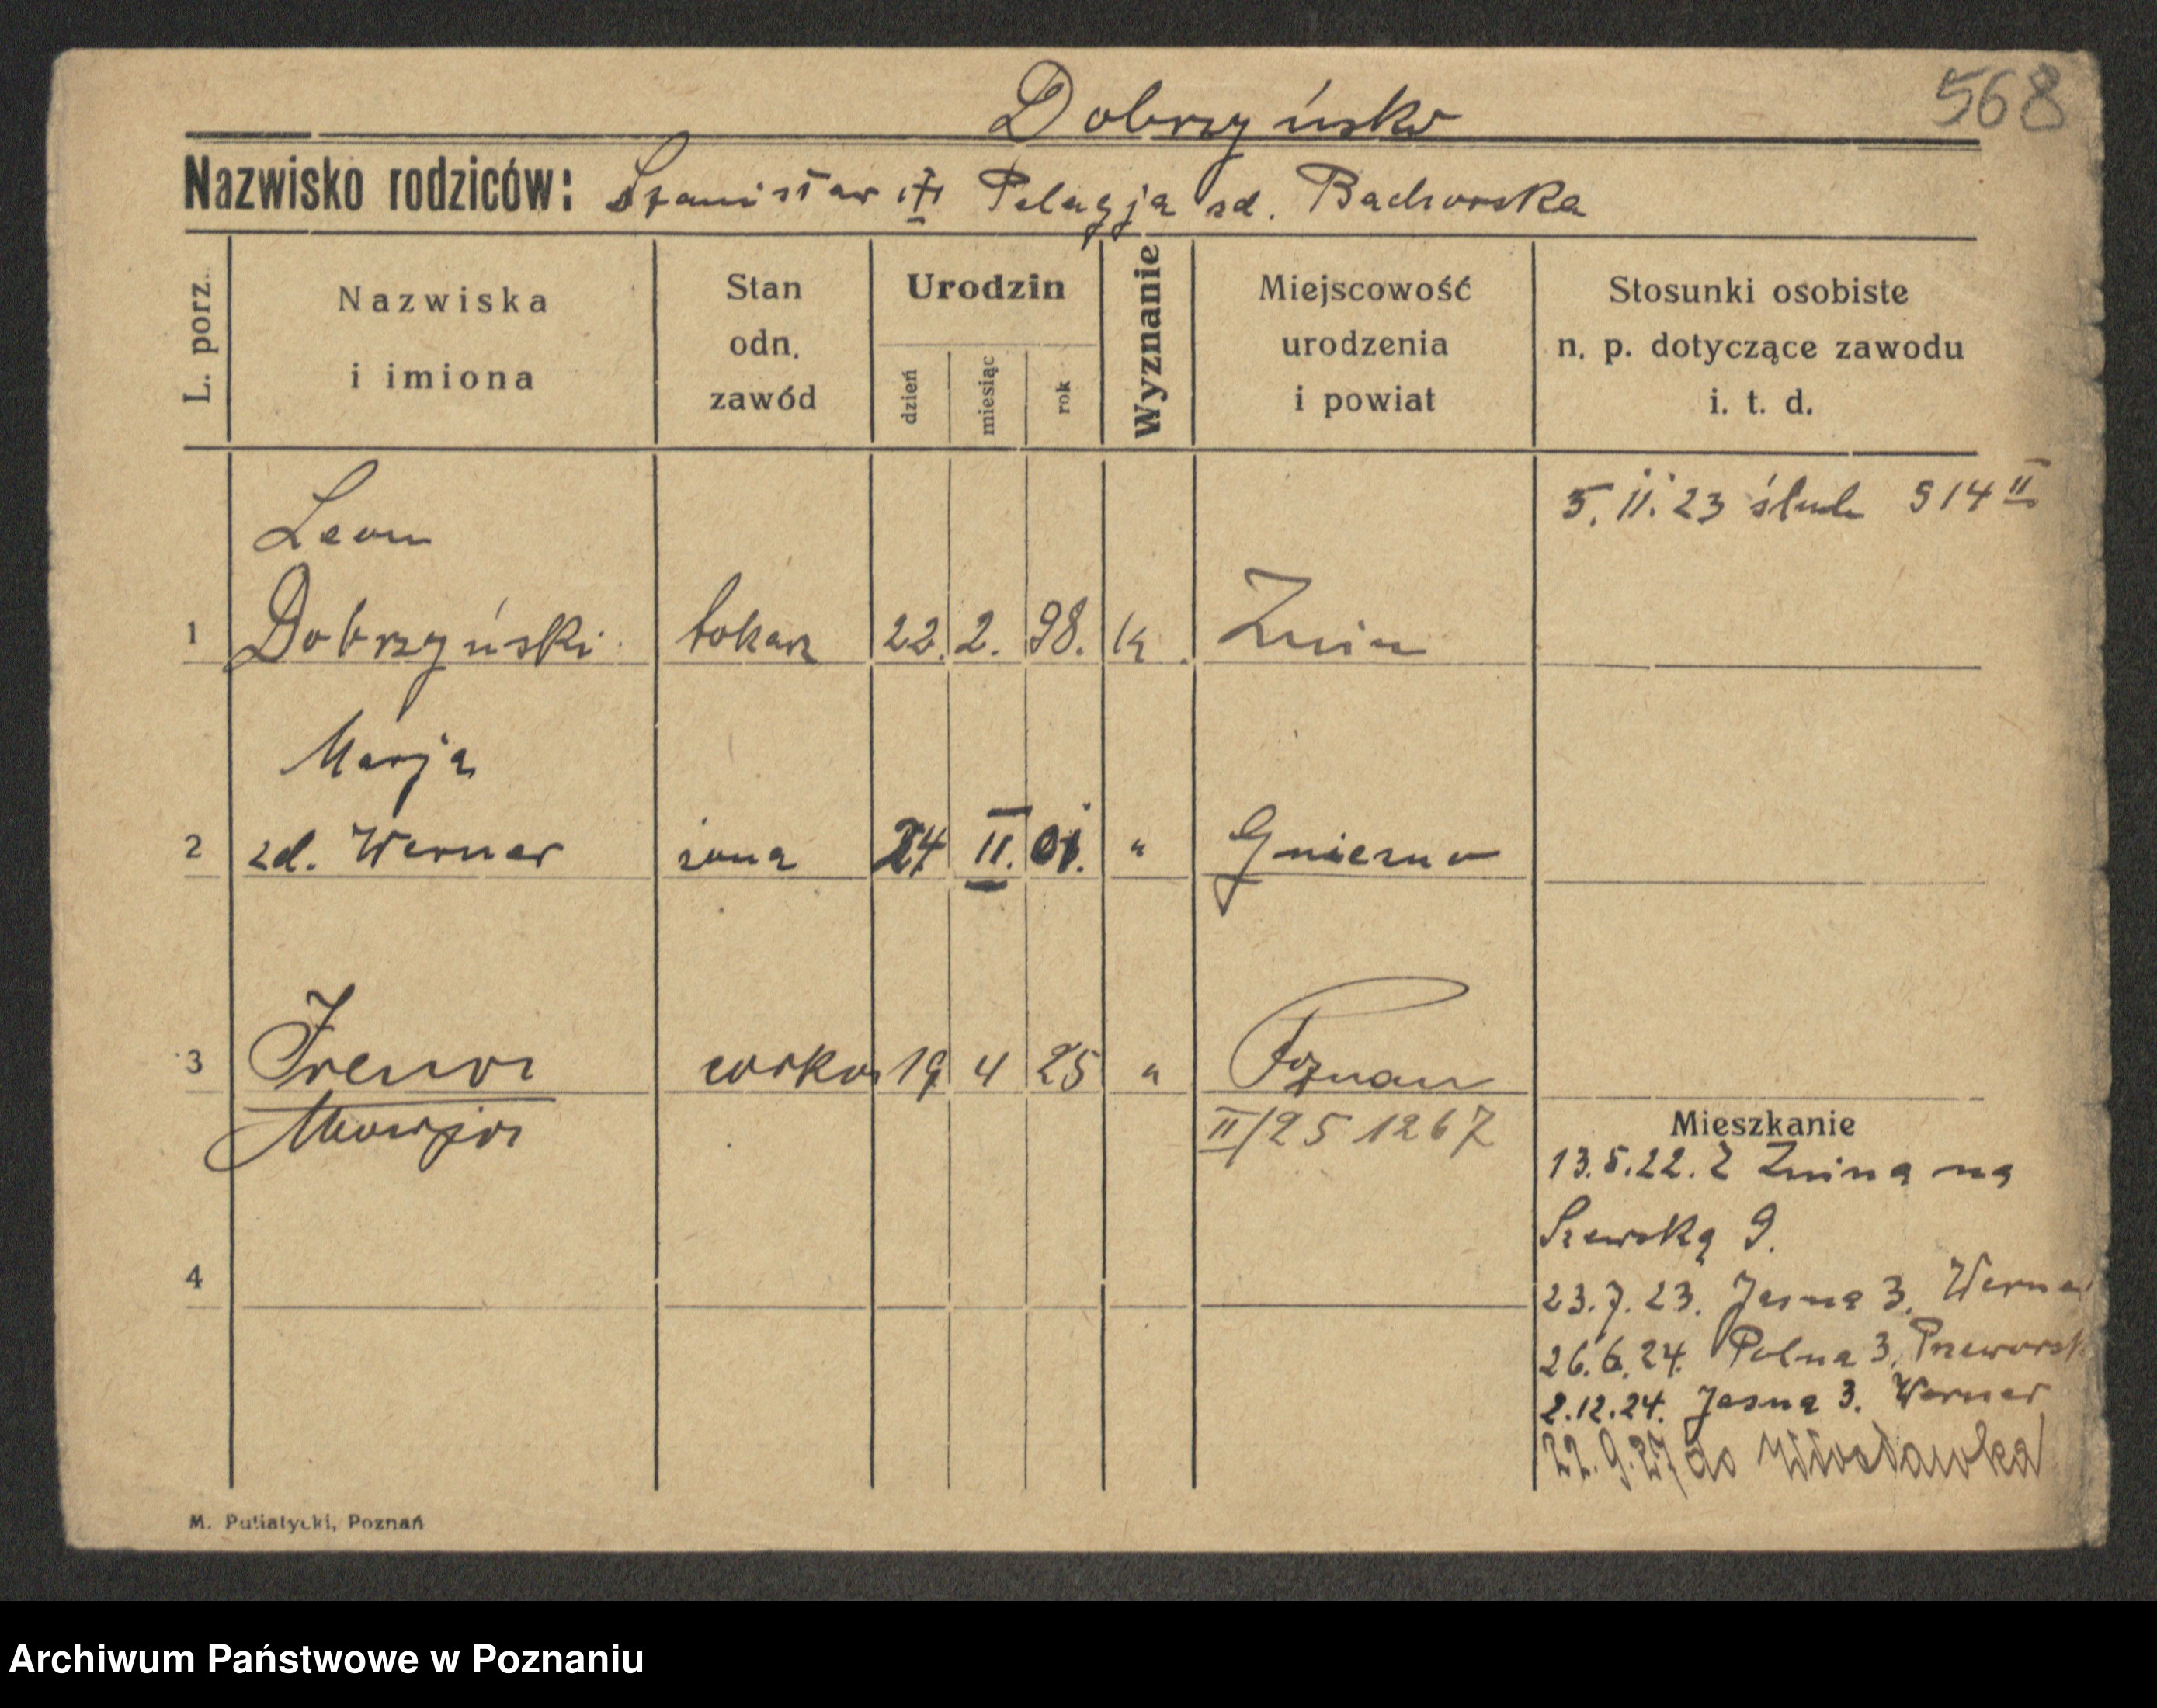 568
Dobrzyński
Nazwisko rodziców: Stanisław i Pelagja zd. Bachorska
L. porz.
Nazwiska
i imiona
Stan
odn.
zawód
Urodzin
dzień
miesiąc
rok
Wyznanie
Miejscowość
urodzenia
i powiat
Stosunki osobiste
n. p. dotyczące zawodu
i. t. d.
5. 11. 23 ślub 514 II
Leon
1 Dobrzyński tokarz 22. 2. 98. k. Żnin
Marja
2 zd. Werner żona 24 II. 01. " Gniezno
3 Irena córka 19 4 25 " Poznań
Marja II/25 1267
Mieszkanie
13.5.22. z Żnina na
Szewską 9.
4
23.7.23. Jasna 3. Werner
26.6.24. Polna 3, Przeworsk
2.12.24. Jasna 3. Werner
22.9.27 do Włocławka
M. Putiatycki, Poznań
Archiwum Państwowe w Poznaniu